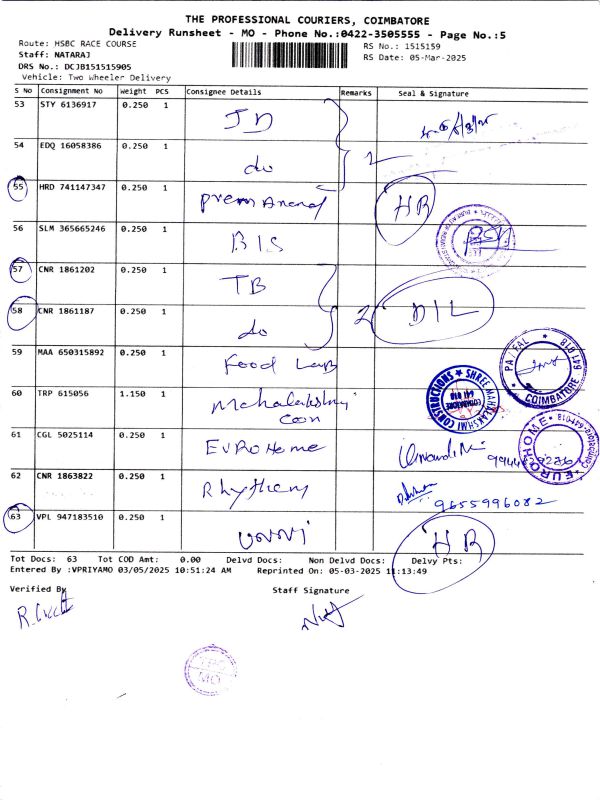 THE PROFESSIONAL COURIERS, COIMBATORE
Delivery Runsheet - MO - Phone No.:0422-3505555 - Page No.:5
Route: HSBC RACE COURSE
Staff: NATARAJ
DRS No.: DCJB151515905
Vehicle: Two Wheeler Delivery
RS No.: 1515159
RS Date: 05-Mar-2025
S No Consignment No Weight PCS Consignee Details Remarks Seal & Signature
53 STY 6136917 0.250 1 JD
54 EDQ 16058386 0.250 1 do 2
55 HRD 741147347 0.250 1 prem Anand HR
56 SLM 365665246 0.250 1 BIS
57 CNR 1861202 0.250 1 TB
58 CNR 1861187 0.250 1 do 2 DIL
59 MAA 650315892 0.250 1 Food Lab
PA / FAL * 641 018 * COIMBATORE
60 TRP 615056 1.150 1 Mahalakshmi Coon
SHREE MAHALAKSHMI CONSTRUCTIONS * COIMBATORE 641 018
61 CGL 5025114 0.250 1 EUROHome
EUROHOME * Coimbatore-641018
62 CNR 1863822 0.250 1 Rhythem 9655996082
63 VPL 947183510 0.250 1 HR
Tot Docs: 63 Tot COD Amt: 0.00 Delvd Docs: Non Delvd Docs: Delvy Pts:
Entered By :VPRIYAMO 03/05/2025 10:51:24 AM Reprinted On: 05-03-2025 11:13:49
Verified By
Staff Signature
TPC
MO